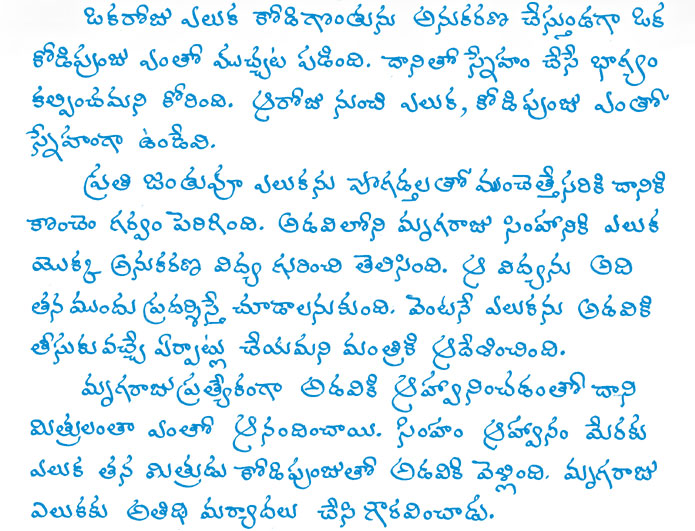 ఒకరోజు ఎలుక కోడిగొంతును అనుకరణ చేస్తుండగా ఒక
కోడిపుంజు ఎంతో ముచ్చట పడింది. దానితో స్నేహం చేసే భాగ్యం
కల్పించమని కోరింది. ఆరోజు నుంచి ఎలుక, కోడిపుంజు ఎంతో
స్నేహంగా ఉండేవి.
ప్రతి జంతువూ ఎలుకను పొగడ్తలతో ముంచెత్తేసరికి దానికి
కొంచెం గర్వం పెరిగింది. అడవిలోని మృగరాజు సింహానికి ఎలుక
యొక్క అనుకరణ విద్య గురించి తెలిసింది. ఆ విద్యను అది
తన ముందు ప్రదర్శిస్తే చూడాలనుకుంది. వెంటనే ఎలుకను అడవికి
తీసుకువచ్చే ఏర్పాట్లు చేయమని మంత్రికి ఆదేశించింది.
మృగరాజు ప్రత్యేకంగా అడవికి ఆహ్వానించడంతో దాని
మిత్రులంతా ఎంతో ఆనందించాయి. సింహం ఆహ్వానం మేరకు
ఎలుక తన మిత్రుడు కోడిపుంజుతో అడవికి వెళ్లింది. మృగరాజు
ఎలుకకు అతిథి మర్యాదలు చేసి గౌరవించాడు.